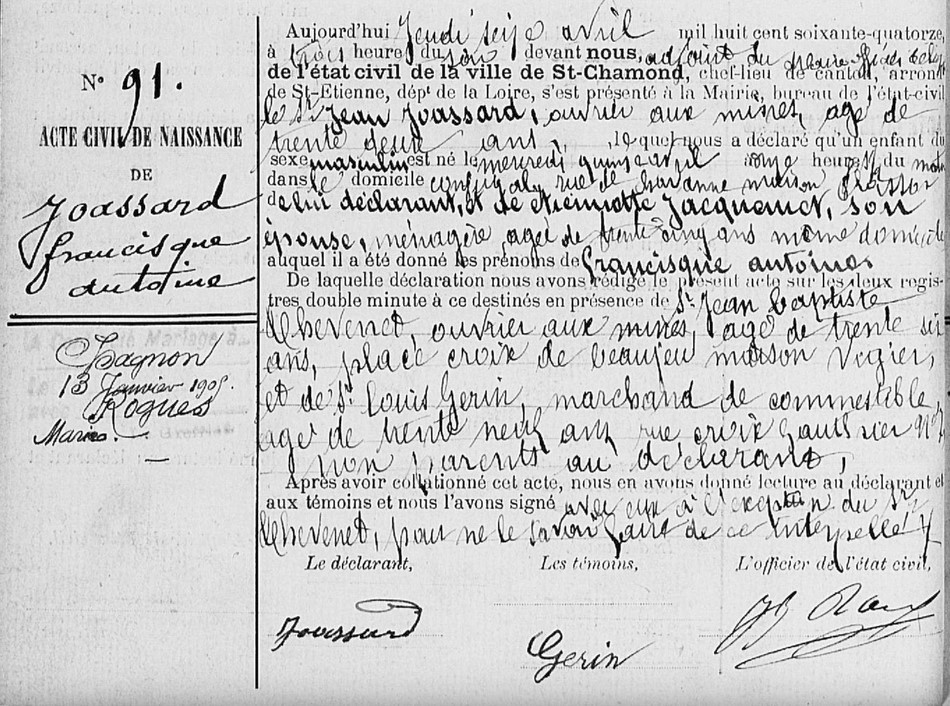 N° 91.
ACTE CIVIL DE NAISSANCE
DE
Joassard
francisque
antoine
Chagnon
13 Janvier 1905.
Rogues
Marie.
Aujourd'hui Jeudi seize avril mil huit cent soixante-quatorze,
à trois heure du soir devant nous, adjoint du maire officier delégé
de l'état civil de la ville de St-Chamond, chef-lieu de canton, arrond
de St-Etienne, dépt de la Loire, s'est présenté à la Mairie, bureau de l'état-civil
le Sr Jean Joassard, ouvrier aux mines, age de
trente deux ans, lequel nous a déclaré qu'un enfant du
sexe masculin est né le mercredi quinze avril onze heures du matin
dans le domicile conjugal, rue de maison
de lui déclarant, et de etiennette Jacquemet, son
épouse, ménagère agée de trente cinq ans même domicile
auquel il a été donné les prénoms de francisque antoine.
De laquelle déclaration nous avons rédigé le présent acte sur les deux regis-
tres double minute à ce destinés en présence de Sr Jean baptiste
Chevenet, ouvrier aux mines, agé de trente six
ans, place croix de beaujeu maison Vigier,
et de Sr Louis Gerin, marchand de commestible,
agé de trente neuf ans, rue croix gauthier
non parents au déclarant,
Après avoir collationné cet acte, nous en avons donné lecture au déclarant et
aux témoins et nous l'avons signé avec eux à l'exception du Sr
Chevenet, pour ne le savoir faire de ce interpellé
Le déclarant, Les témoins, L'officier de l'état civil,
Joassard
Gerin